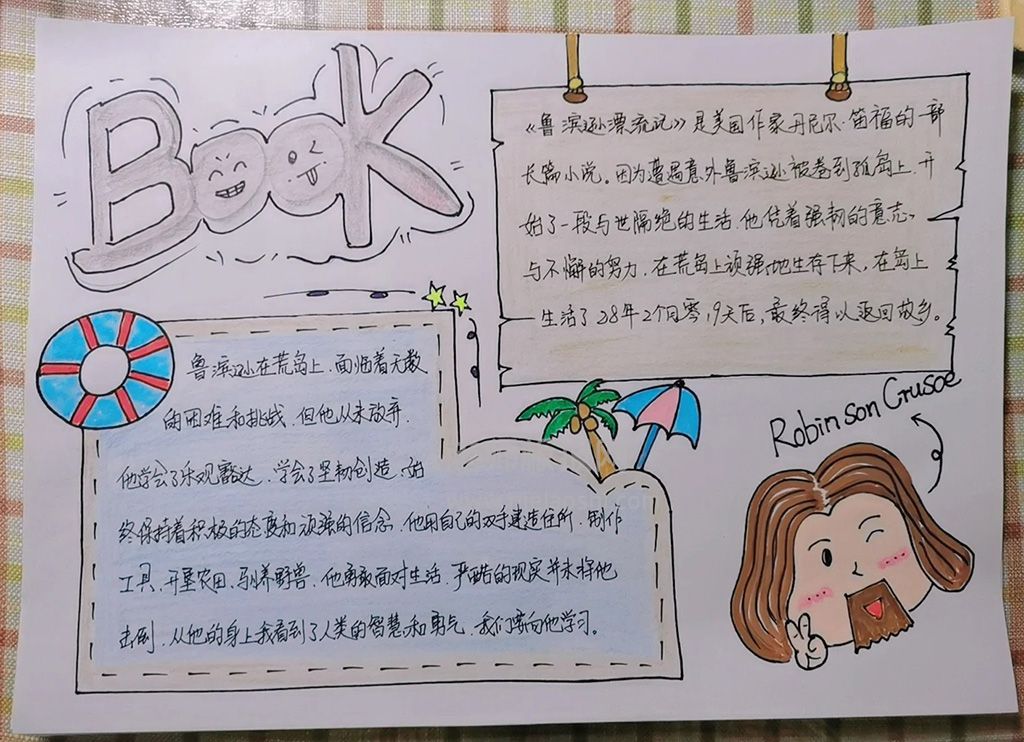 Book
《鲁滨逊漂流记》是美国作家丹尼尔·笛福的一部
长篇小说。因为遭遇意外鲁滨逊被卷到孤岛上,开
始了一段与世隔绝的生活,他凭着强韧的意志、
与不懈的努力,在荒岛上顽强地生存下来,在岛上
生活了28年2个月零19天后,最终得以返回故乡。
鲁滨逊在荒岛上,面临着无数
的困难和挑战,但他从未放弃.
他学会了乐观豁达、学会了坚韧创造、始
终保持着积极的态度和顽强的信念,他用自己的双手建造住所、制作
工具、开垦农田、驯养野兽、他勇敢面对生活,严酷的现实并未将他
击倒,从他的身上我看到了人类的智慧和勇气,我们要向他学习。
Robinson Crusoe